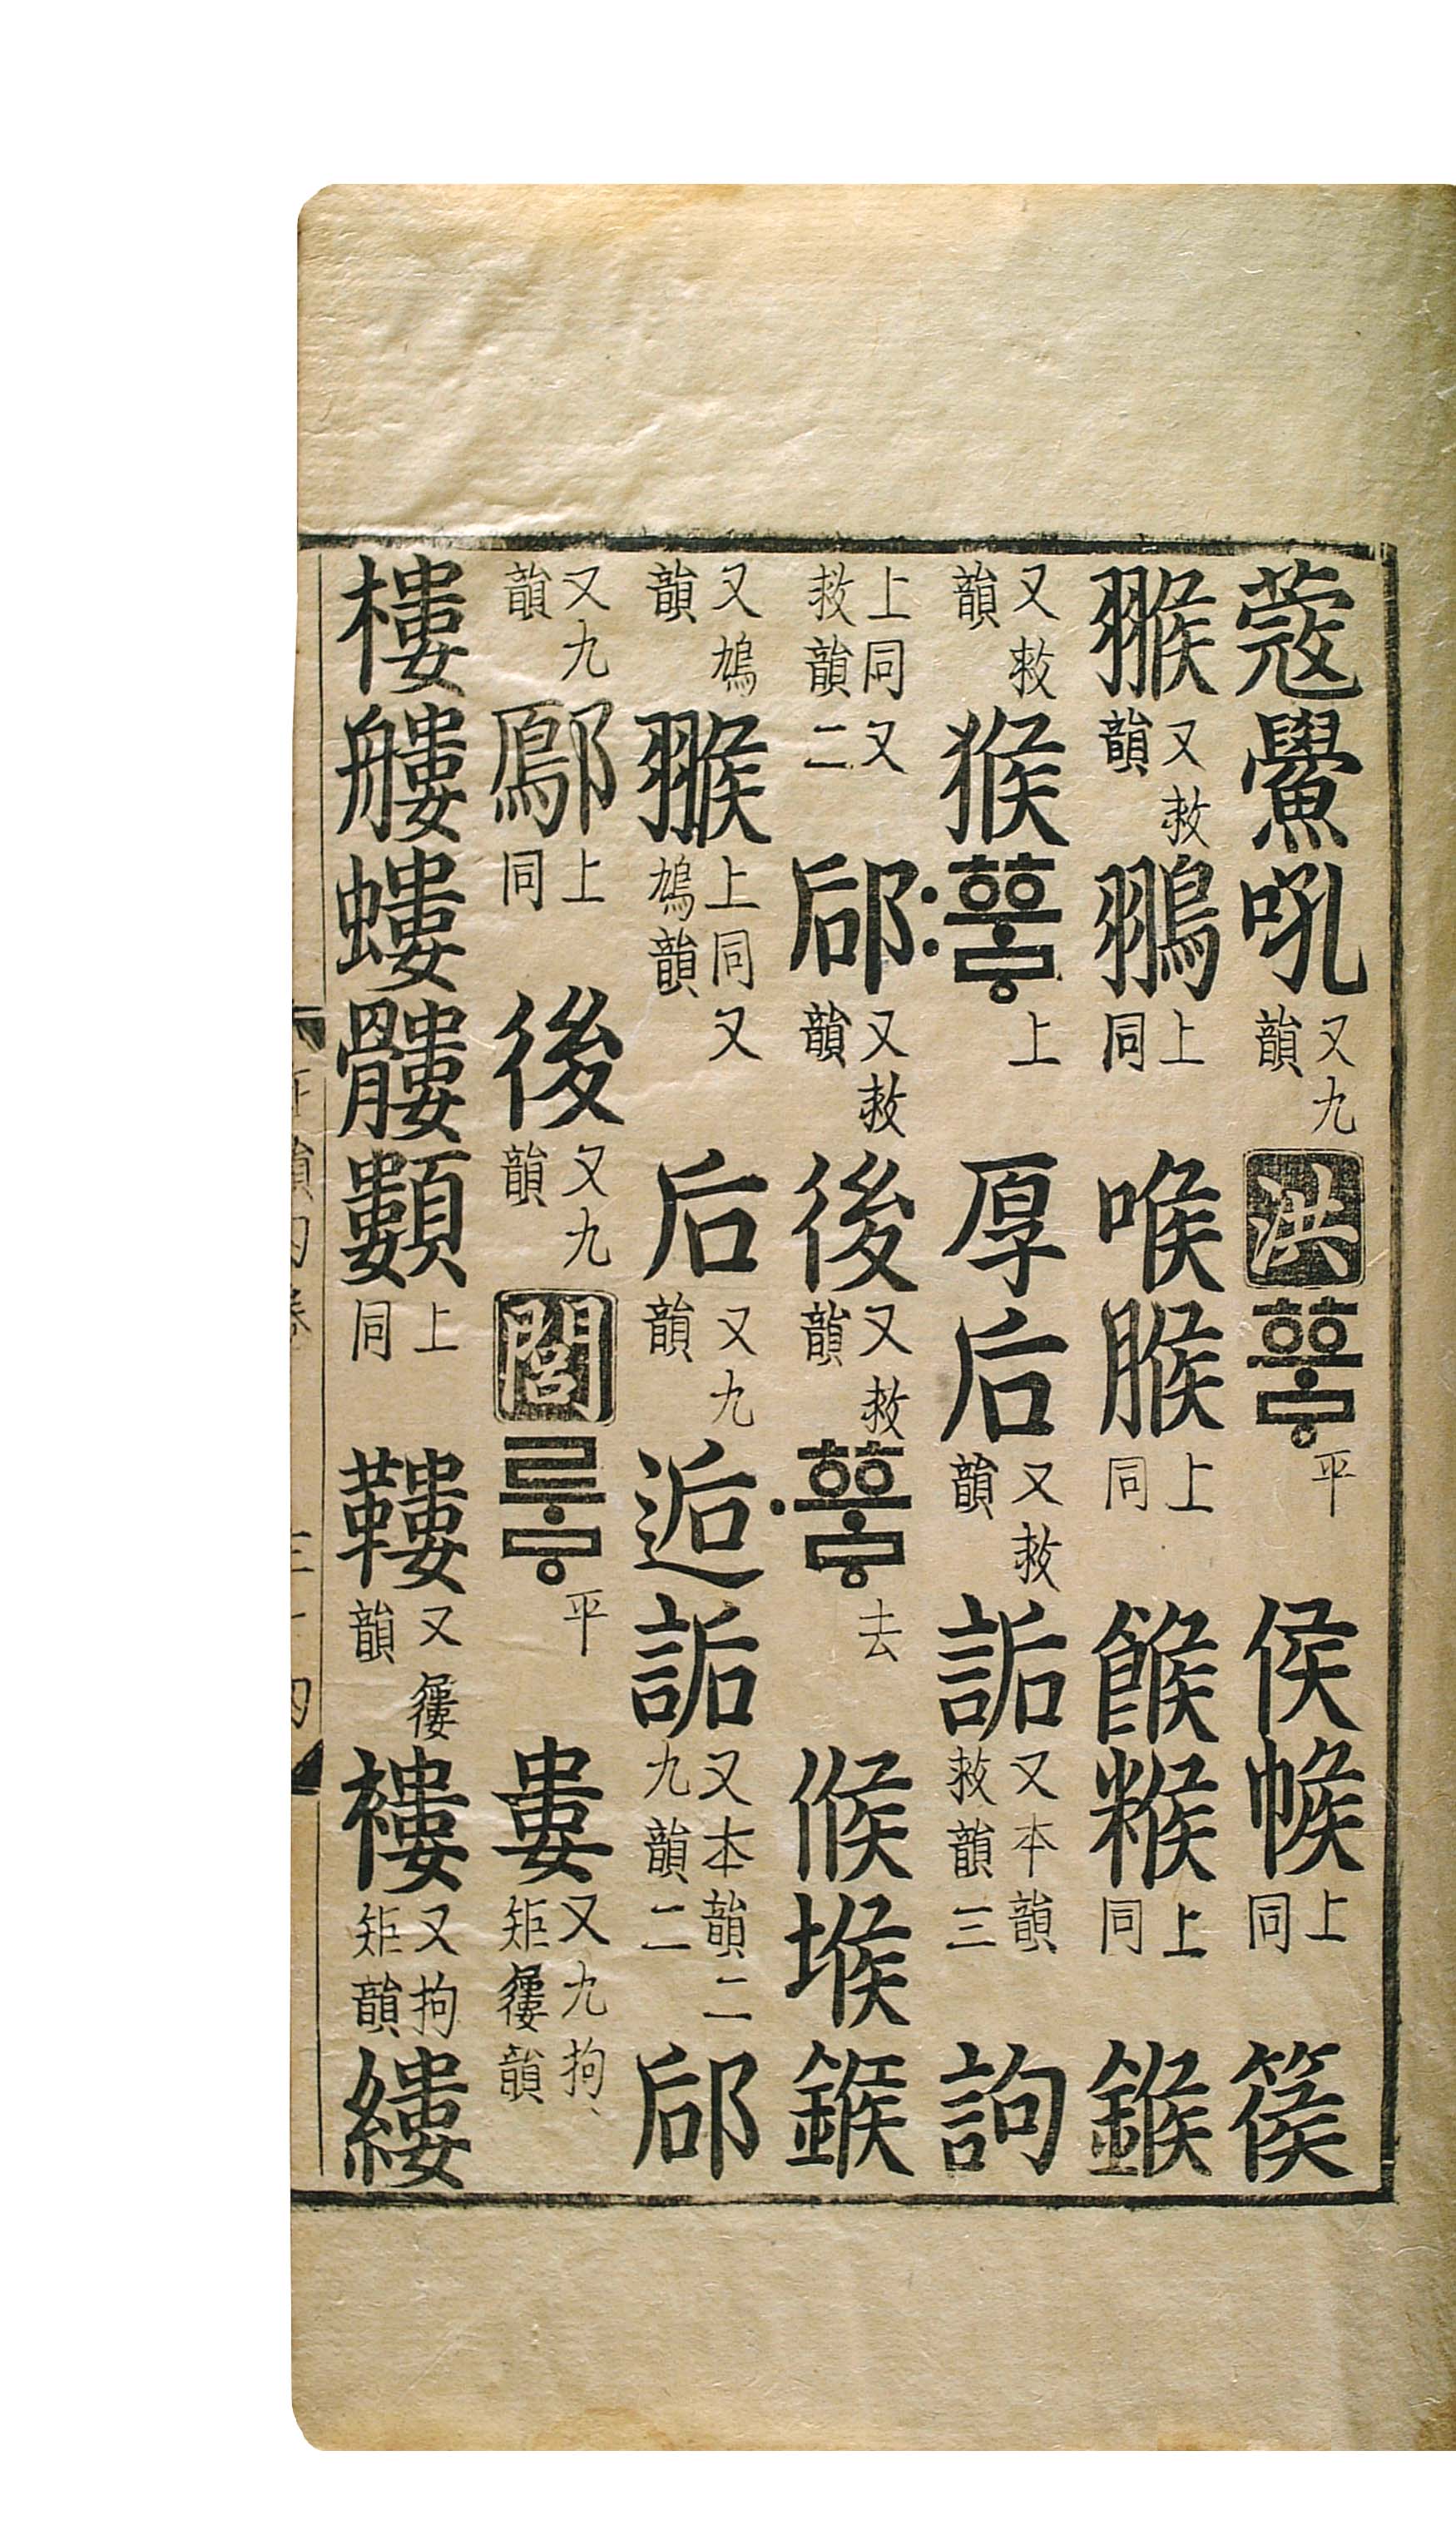 蔲鱟吼又九韻洪ᅘᅮᇢ平侯帿上同篌
翭又救韻上同喉㬋上同餱糇上同鍭
又救韻猴〯ᅘᅮᇢ上厚后又救韻詬又本韻三救韻訽
上同又救韻二郈又救韻後又救韻〮ᅘᅮᇢ去候堠鍭
又鳩韻翭上同又鳩韻后又九韻逅詬又本韻二九韻二郈
又九韻上同後又九韻閭루ᇢ平婁又九拘矩屨韻
樓艛螻髏上同鞻又屨韻褸又拘矩韻縷